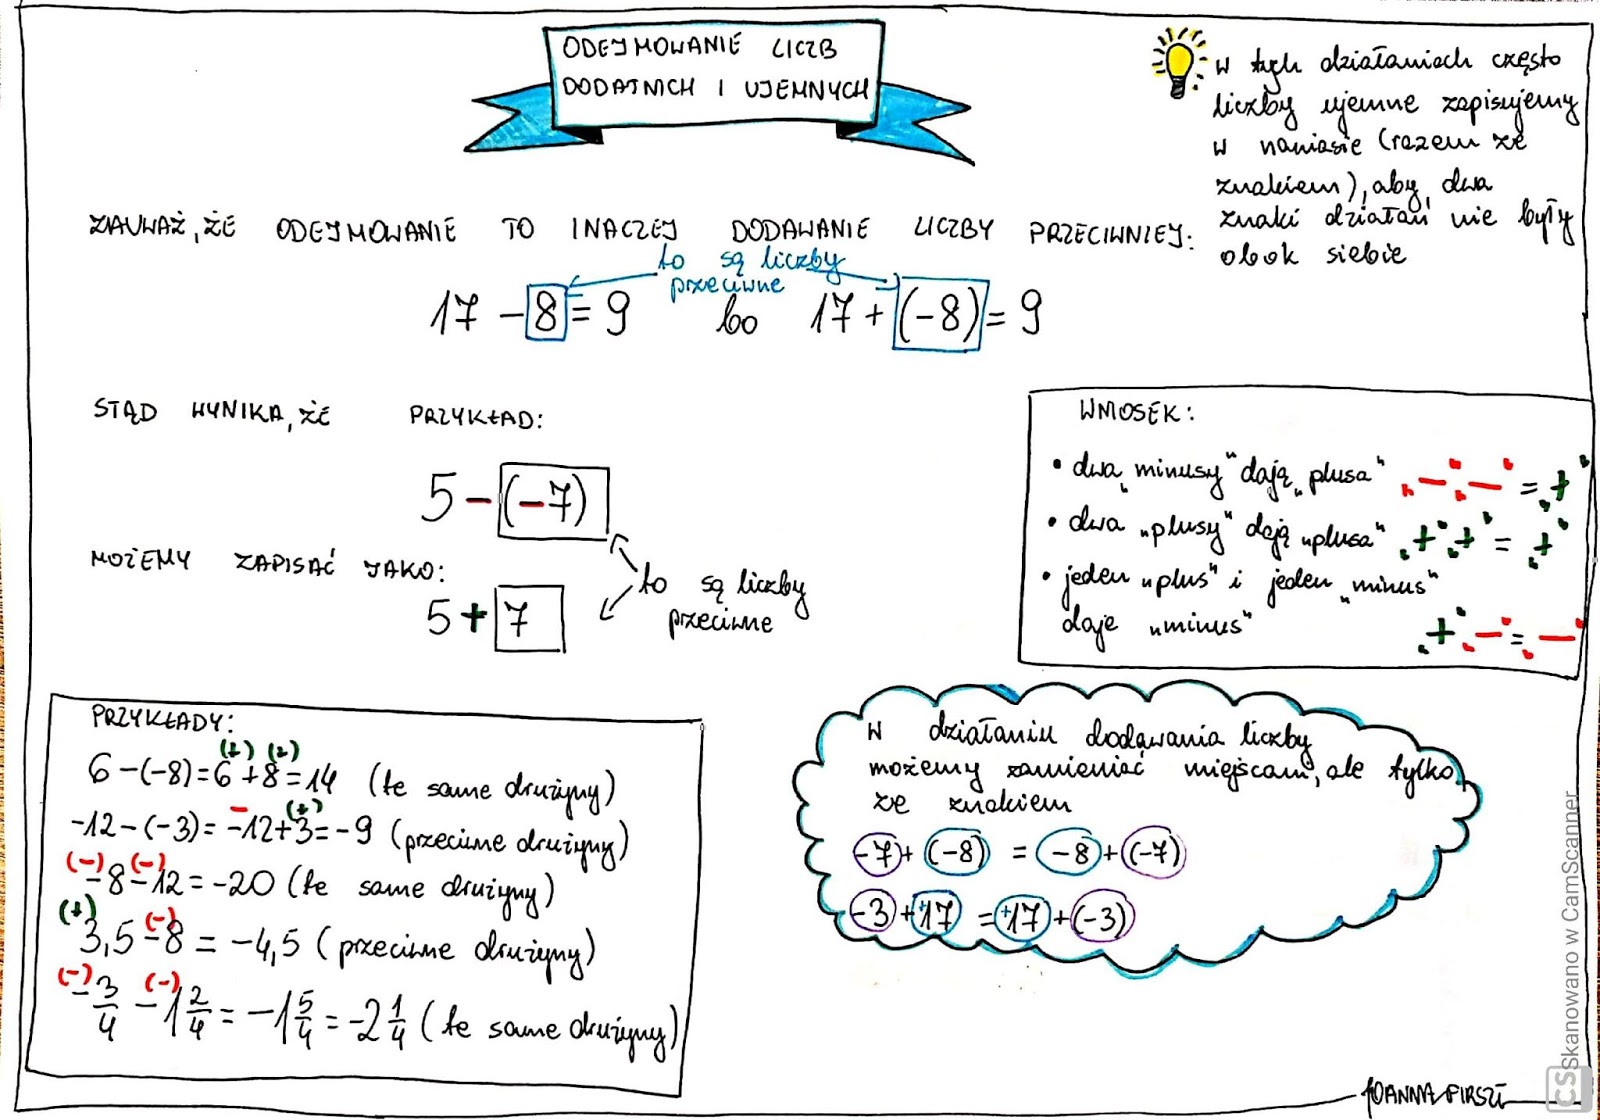 ODEJMOWANIE LICZB
DODATNICH I UJEMNYCH
W tych działaniach często
liczby ujemne zapisujemy
w nawiasie (razem ze
znakiem), aby dwa
znaki działań nie były
obok siebie
ZAUWAŻ, ŻE ODEJMOWANIE TO INACZEJ DODAWANIE LICZBY PRZECIWNEJ:
to są liczby
przeciwne
17 - 8 = 9 bo 17 + (-8) = 9
STĄD WYNIKA, ŻE PRZYKŁAD:
5 - (-7)
MOŻEMY ZAPISAĆ JAKO:
5 + 7
to są liczby
przeciwne
WNIOSEK:
• dwa „minusy" dają „plusa" „-" „-" = „+"
• dwa „plusy" dają „plusa" „+" „+" = „+"
• jeden „plus" i jeden „minus"
daje „minus" „+" „-" = „-"
PRZYKŁADY:
(+) (+)
6 - (-8) = 6 + 8 = 14 (te same drużyny)
- (+)
-12 - (-3) = -12 + 3 = -9 (przeciwne drużyny)
(-) (-)
-8 - 12 = -20 (te same drużyny)
(+) (-)
3,5 - 8 = -4,5 (przeciwne drużyny)
(-) (-)
-3/4 - 1 2/4 = -1 5/4 = -2 1/4 (te same drużyny)
W działaniu dodawania liczby
możemy zamieniać miejscami, ale tylko
ze znakiem
-7 + (-8) = -8 + (-7)
-3 + +17 = +17 + (-3)
JOANNA FIRSZT
CS Skanowano w CamScanner